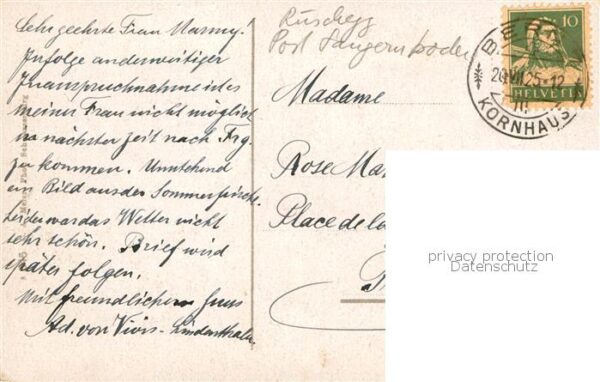 Sehr geehrte Frau Marmy!
Infolge anderweitiger
Inanspruchnahme ist es
meiner Frau nicht möglich
in nächster Zeit nach Frg.
zu kommen. Umstehend
ein Bild aus der Sommerfrische.
Leider war das Wetter nicht
sehr schön. Brief wird
später folgen.
Mit freundlichem Gruss
Ad. von
Rüschegg
Post Sangernboden
10
HELVETIA
BERN
25-12
KORNHAUS
Madame
Rose Mar
Place de la
privacy protection
Datenschutz